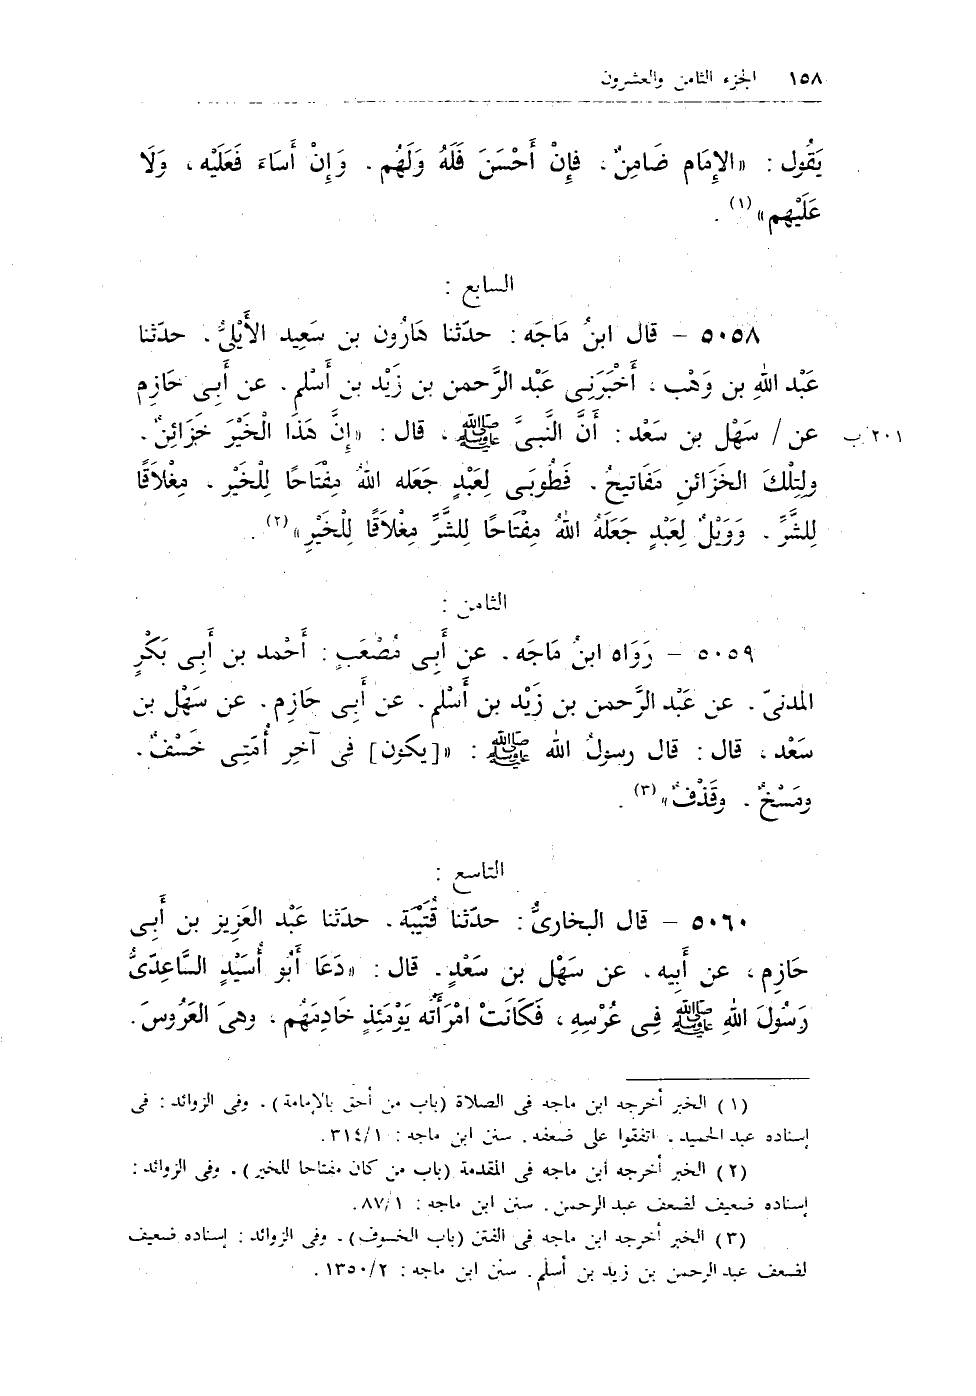 ١٥٨ الجزء الثامن والعشرون
يَقُول : «الإِمَام ضَامِنٌ، فَإِنْ أَحْسَنَ فَلَهُ وَلَهُم. وَإِنْ أَسَاءَ فَعَلَيْه، وَلَا
عَلَيْهِم»(١).
السابع :
٥٠٥٨ – قال ابنُ مَاجَه : حدّثنا هَارُون بن سَعِيد الأَيْلِىُّ. حدّثنا
عَبْد اللهِ بن وَهْب، أَخْبَرَنِى عَبْد الرَّحمن بن زَيْد بن أَسْلم. عن أَبِى حَازِم
عن / سَهْل بن سَعْد : أَنَّ النَّبىَّ ﷺ، قال : «إِنَّ هَذَا الْخَيْرَ خَزَائِنٌ. ٢٠١/ب
ولِتِلْكَ الخَزَائنِ مَفَاتيحُ. فَطُوبَى لِعَبْدٍ جَعَله اللهُ مِفْتَاحًا لِلْخَيْر. مِغْلَاقًا
لِلشَّرِّ. وَوَيْلٌ لِعَبْدٍ جَعَلَهُ اللهُ مِفْتَاحًا لِلشَّرِّ مِغْلَاقًا لِلْخَيْرِ»(٢).
الثامن :
٥٠٥٩ – رَوَاه ابنُ مَاجَه. عن أَبِى مُصْعَبٍ : أَحْمد بن أَبِى بَكْرٍ
المدنىّ. عن عَبْد الرَّحمن بن زَيْد بن أَسْلم. عن أَبِى حَازِم. عن سَهْل بن
سَعْد، قال : قال رسولُ الله ﷺ : «[يكون] فى آخِرِ أُمَّتِى خَسْفٌ.
ومَسْخٌ. وقَذْفٌ»(٣).
التاسع :
٥٠٦٠ – قال البخارىُّ : حدّثنا قُتَيْبَة. حدّثنا عَبْد العَزِيز بن أَبِى
حَازِم، عن أَبِيه. عن سَهْل بن سَعْدٍ. قال : «دَعَا أَبُو أُسَيْدٍ السَّاعِدَىُّ
رَسُولَ اللهِ ﷺ فِى عُرْسِهِ، فَكَانَتْ امْرَأَتُه يَوْمَئِذٍ خَادِمَهُم، وهىَ العَرُوسَ.
(١) الخبر أخرجه ابن ماجه فى الصلاة (باب من أحق بالإمامة). وفى الزوائد : فى
إسناده عبد الحميد. اتفقوا على ضعفه. سنن ابن ماجه : ٣١٤/١.
(٢) الخبر أخرجه ابن ماجه فى المقدمة (باب من كان مفتاحا للخير). وفى الزوائد :
إسناده ضعيف لضعف عبد الرحمن. سنن ابن ماجه : ٨٧/١.
(٣) الخبر أخرجه ابن ماجه فى الفتن (باب الخسوف). وفى الزوائد : إسناده ضعيف
لضعف عبد الرحمن بن زيد بن أسلم. سنن ابن ماجه : ١٣٥٠/٢.